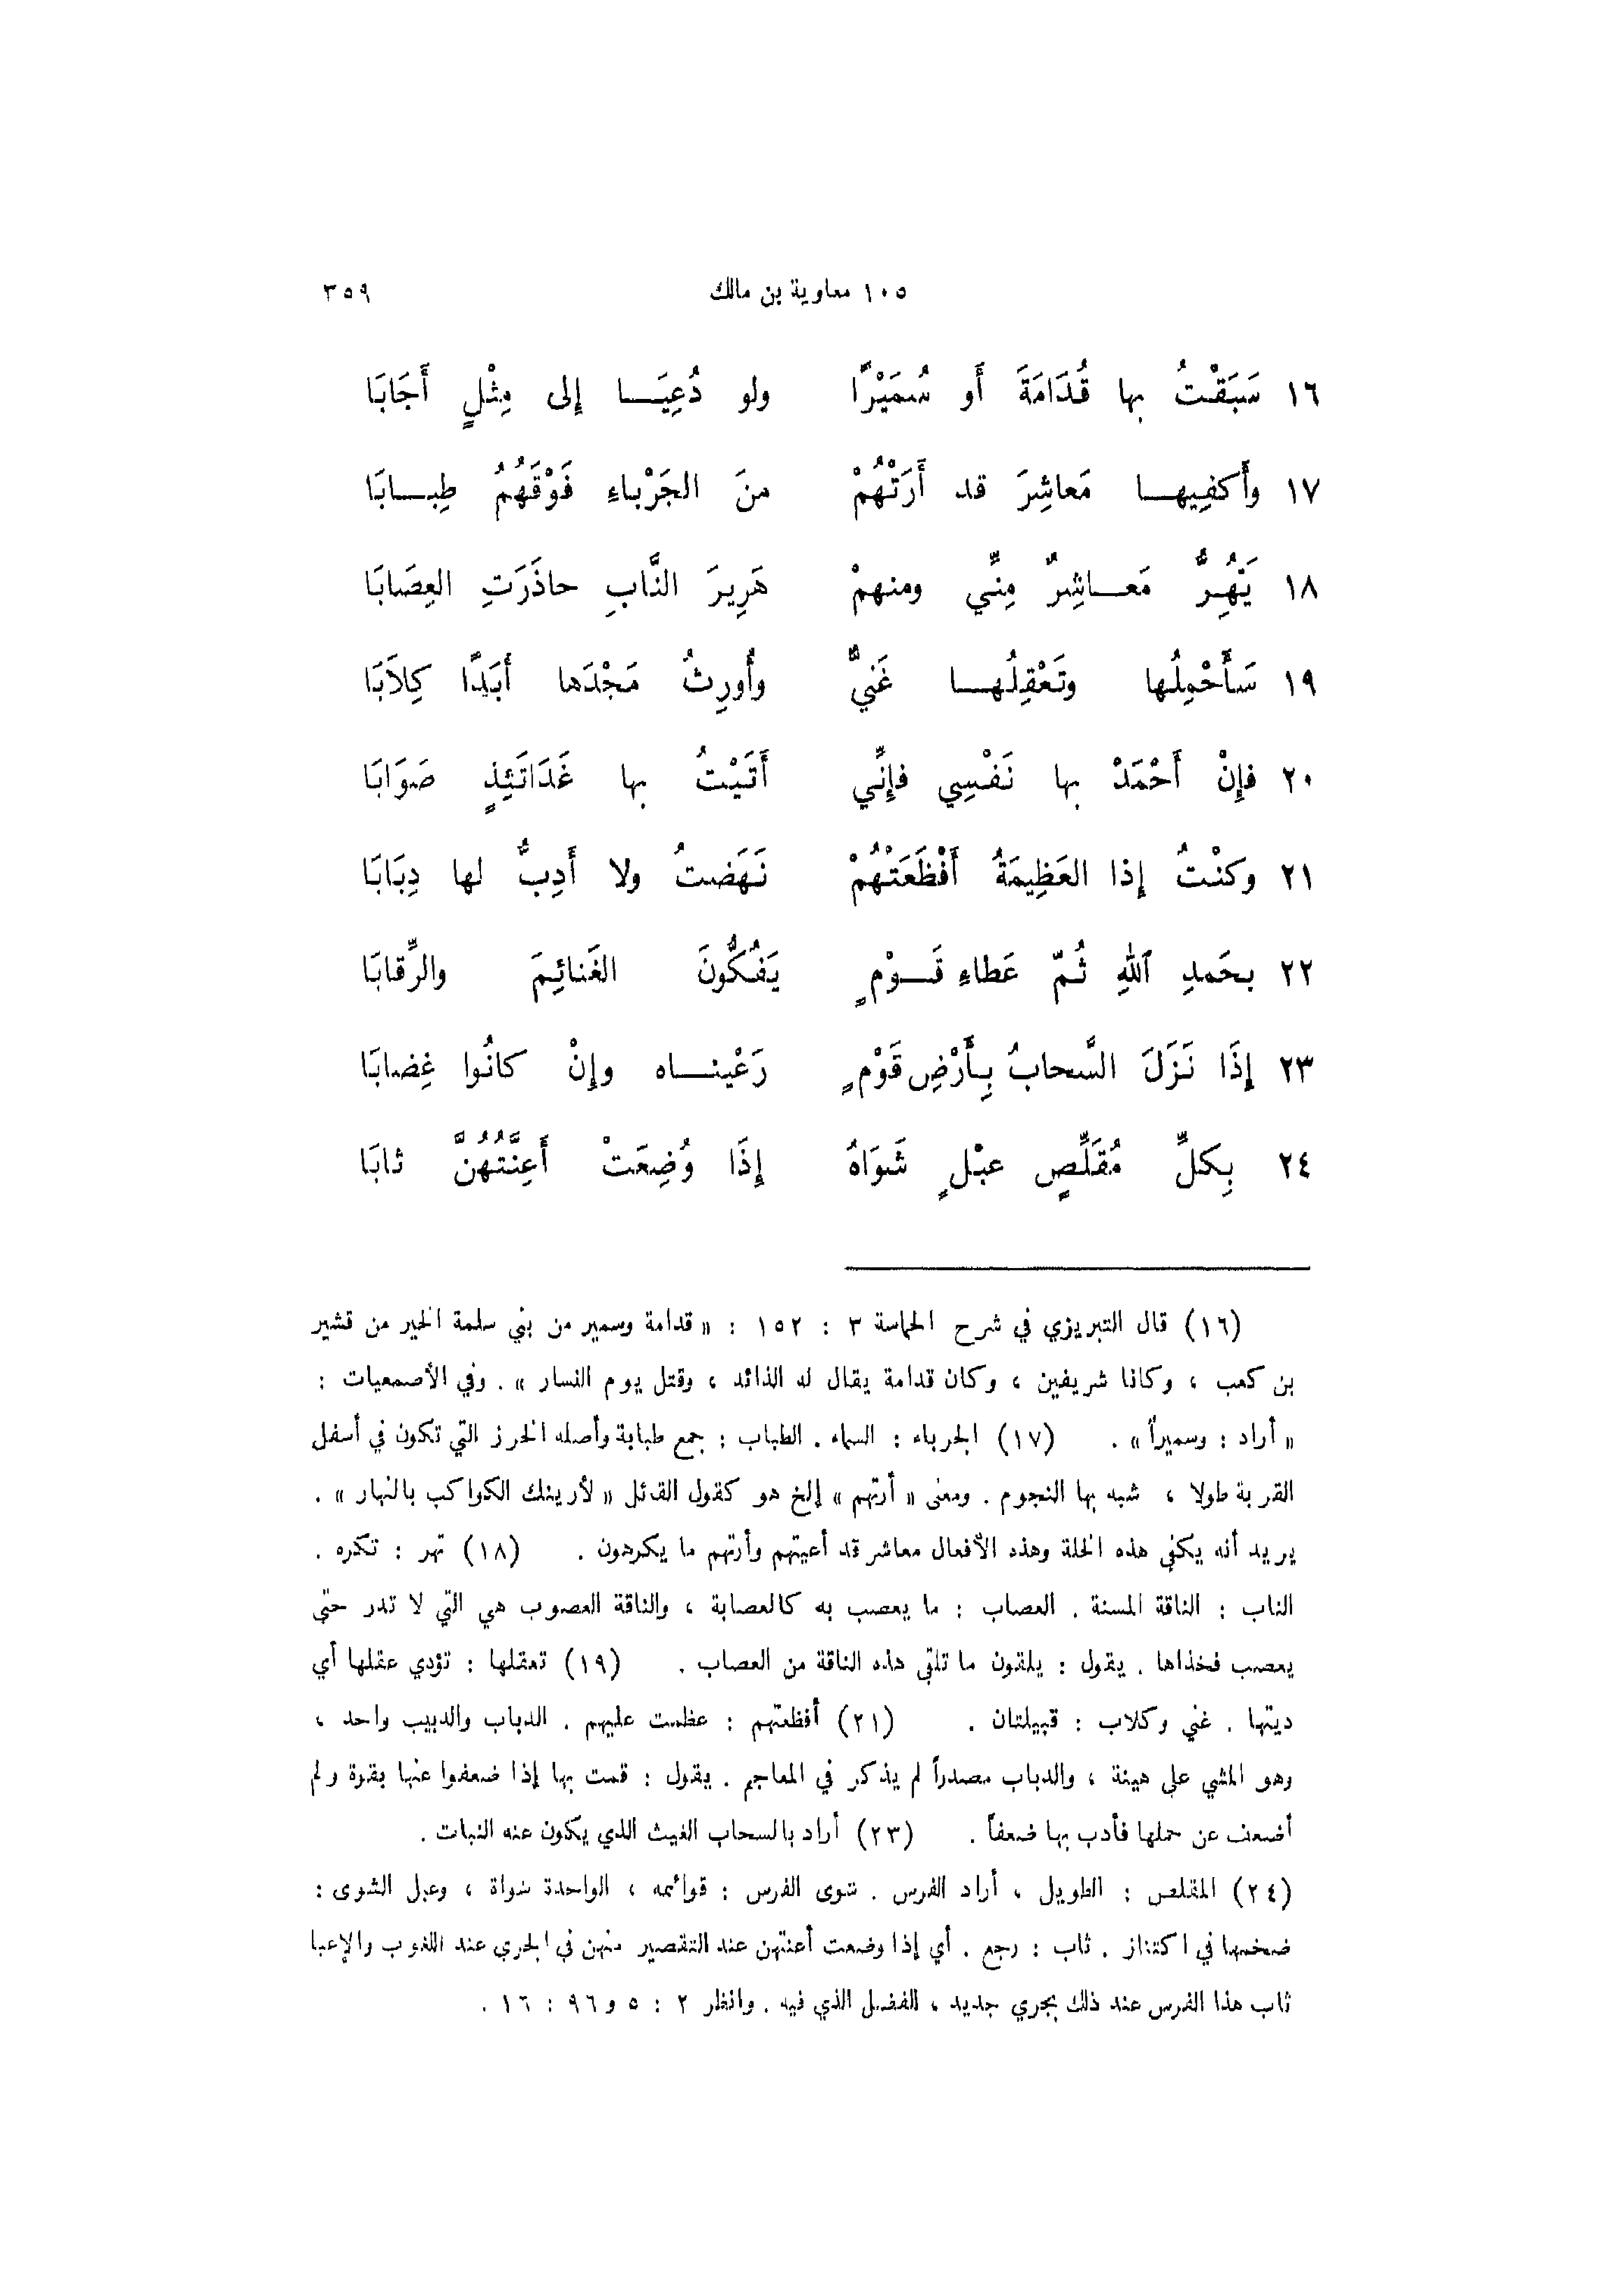 ١٠٥ معاوية بن مالك ٣٥٩
١٦ سَبَقْتُ بها قُدَامَةَ أَو سُمَيْرًا ولو دُعِيَـــا إلى مِثْلٍ أَجَابَا
١٧ وأَكفِيهـــا مَعاشِرَ قد أَرَتْهُمْ منَ الجَرْباءِ فَوْقَهُمُ طِبـــابَا
١٨ يَهُِرُّ مَعَـــاشِرٌ مِنِّي ومنهمْ هَرِيرَ النَّابِ حاذَرَتِ العِصَابَا
١٩ سَأَحْمِلُها وتَعْقِلُهـــا غَنيٌّ وأُورِثُ مَجْدَها أَبَدًا كِلاَبَا
٢٠ فإِنْ أَحْمَدْ بها نَفْسِي فإِنِّي أَتَيْتُ بها غَدَاتَئِذٍ صَوَابَا
٢١ وكنْتُ إذا العَظِيمَةُ أَفْظَعَتْهُمْ نَهَضتُ ولا أَدِبُّ لها دِبَابَا
٢٢ بحَمدِ ٱللهِ ثُمّ عَطاءِ قَـــوْمٍ يَفُكُّونَ الغَنائِمَ والرِّقابَا
٢٣ إِذَا نَزَلَ السَّحابُ بِأَرْضِ قَوْمٍ رَعْينـــاه وإِنْ كانُوا غِضابَا
٢٤ بِكلِّ مُقَلِّصٍ عبْلٍ شَوَاهُ إِذَا وُضِعَتْ أَعِنَّتُهُنَّ ثابَا
(١٦) قال التبريزي في شرح الحماسة ٣ : ١٥٢ : « قدامة وسمير من بني سلمة الخير من قشير
بن كعب ، وكانا شريفين ، وكان قدامة يقال له الذائد ، وقتل يوم النسار » . وفي الأصمعيات :
« أراد : وسميراً » . (١٧) الجرباء : السماء . الطباب : جمع طبابة وأصله الخرز التي تكون في أسفل
القربة طولا ، شبه بها النجوم . ومعنى « أرتهم » إلخ هو كقول القائل « لأرينك الكواكب بالنهار » .
يريد أنه يكفي هذه الخلة وهذه الأفعال معاشر قد أعيتهم وأرتهم ما يكرهون . (١٨) تهر : تكره .
الناب : الناقة المسنة . العصاب : ما يعصب به كالعصابة ، والناقة العصوب هي التي لا تدر حتى
يعصب فخذاها . يقول : يلقون ما تلقى هذه الناقة من العصاب . (١٩) تعقلها : تؤدي عقلها أي
ديتها . غني وكلاب : قبيلتان . (٢١) أفظعتهم : عظمت عليهم . الدباب والدبيب واحد ،
وهو المشي على هينة ، والدباب مصدراً لم يذكر في المعاجم . يقول : قمت بها إذا ضعفوا عنها بقوة ولم
أضعف عن حملها فأدب بها ضعفاً . (٢٣) أراد بالسحاب الغيث الذي يكون عنه النبات .
(٢٤) المقلص : الطويل ، أراد الفرس . شوى الفرس : قوائمه ، الواحدة شواة ، وعبل الشوى :
ضخمها في اكتناز . ثاب : رجع . أي إذا وضعت أعنتهن عند التقصير منهن في الجري عند اللغوب والإعيا
ثاب هذا الفرس عند ذلك بجري جديد ، الفضل الذي فيه . وانظر ٢ : ٥ و ٩٦ : ١٦ .